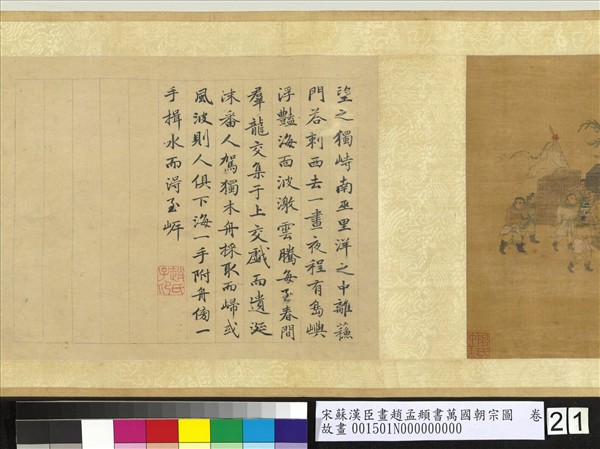 望之獨峙南巫里洋之中離蘇
門荅剌西去一晝夜程有島嶼
浮艷海面波激雲騰每至春間
羣龍交集于上交戲而遺涎
沫番人駕獨木舟採取而歸或
風波則人俱下海一手附舟傍一
手揖水而得至岸
趙氏子昂
宋蘇漢臣畫趙孟頫書萬國朝宗圖 卷
故畫 001501N000000000
21